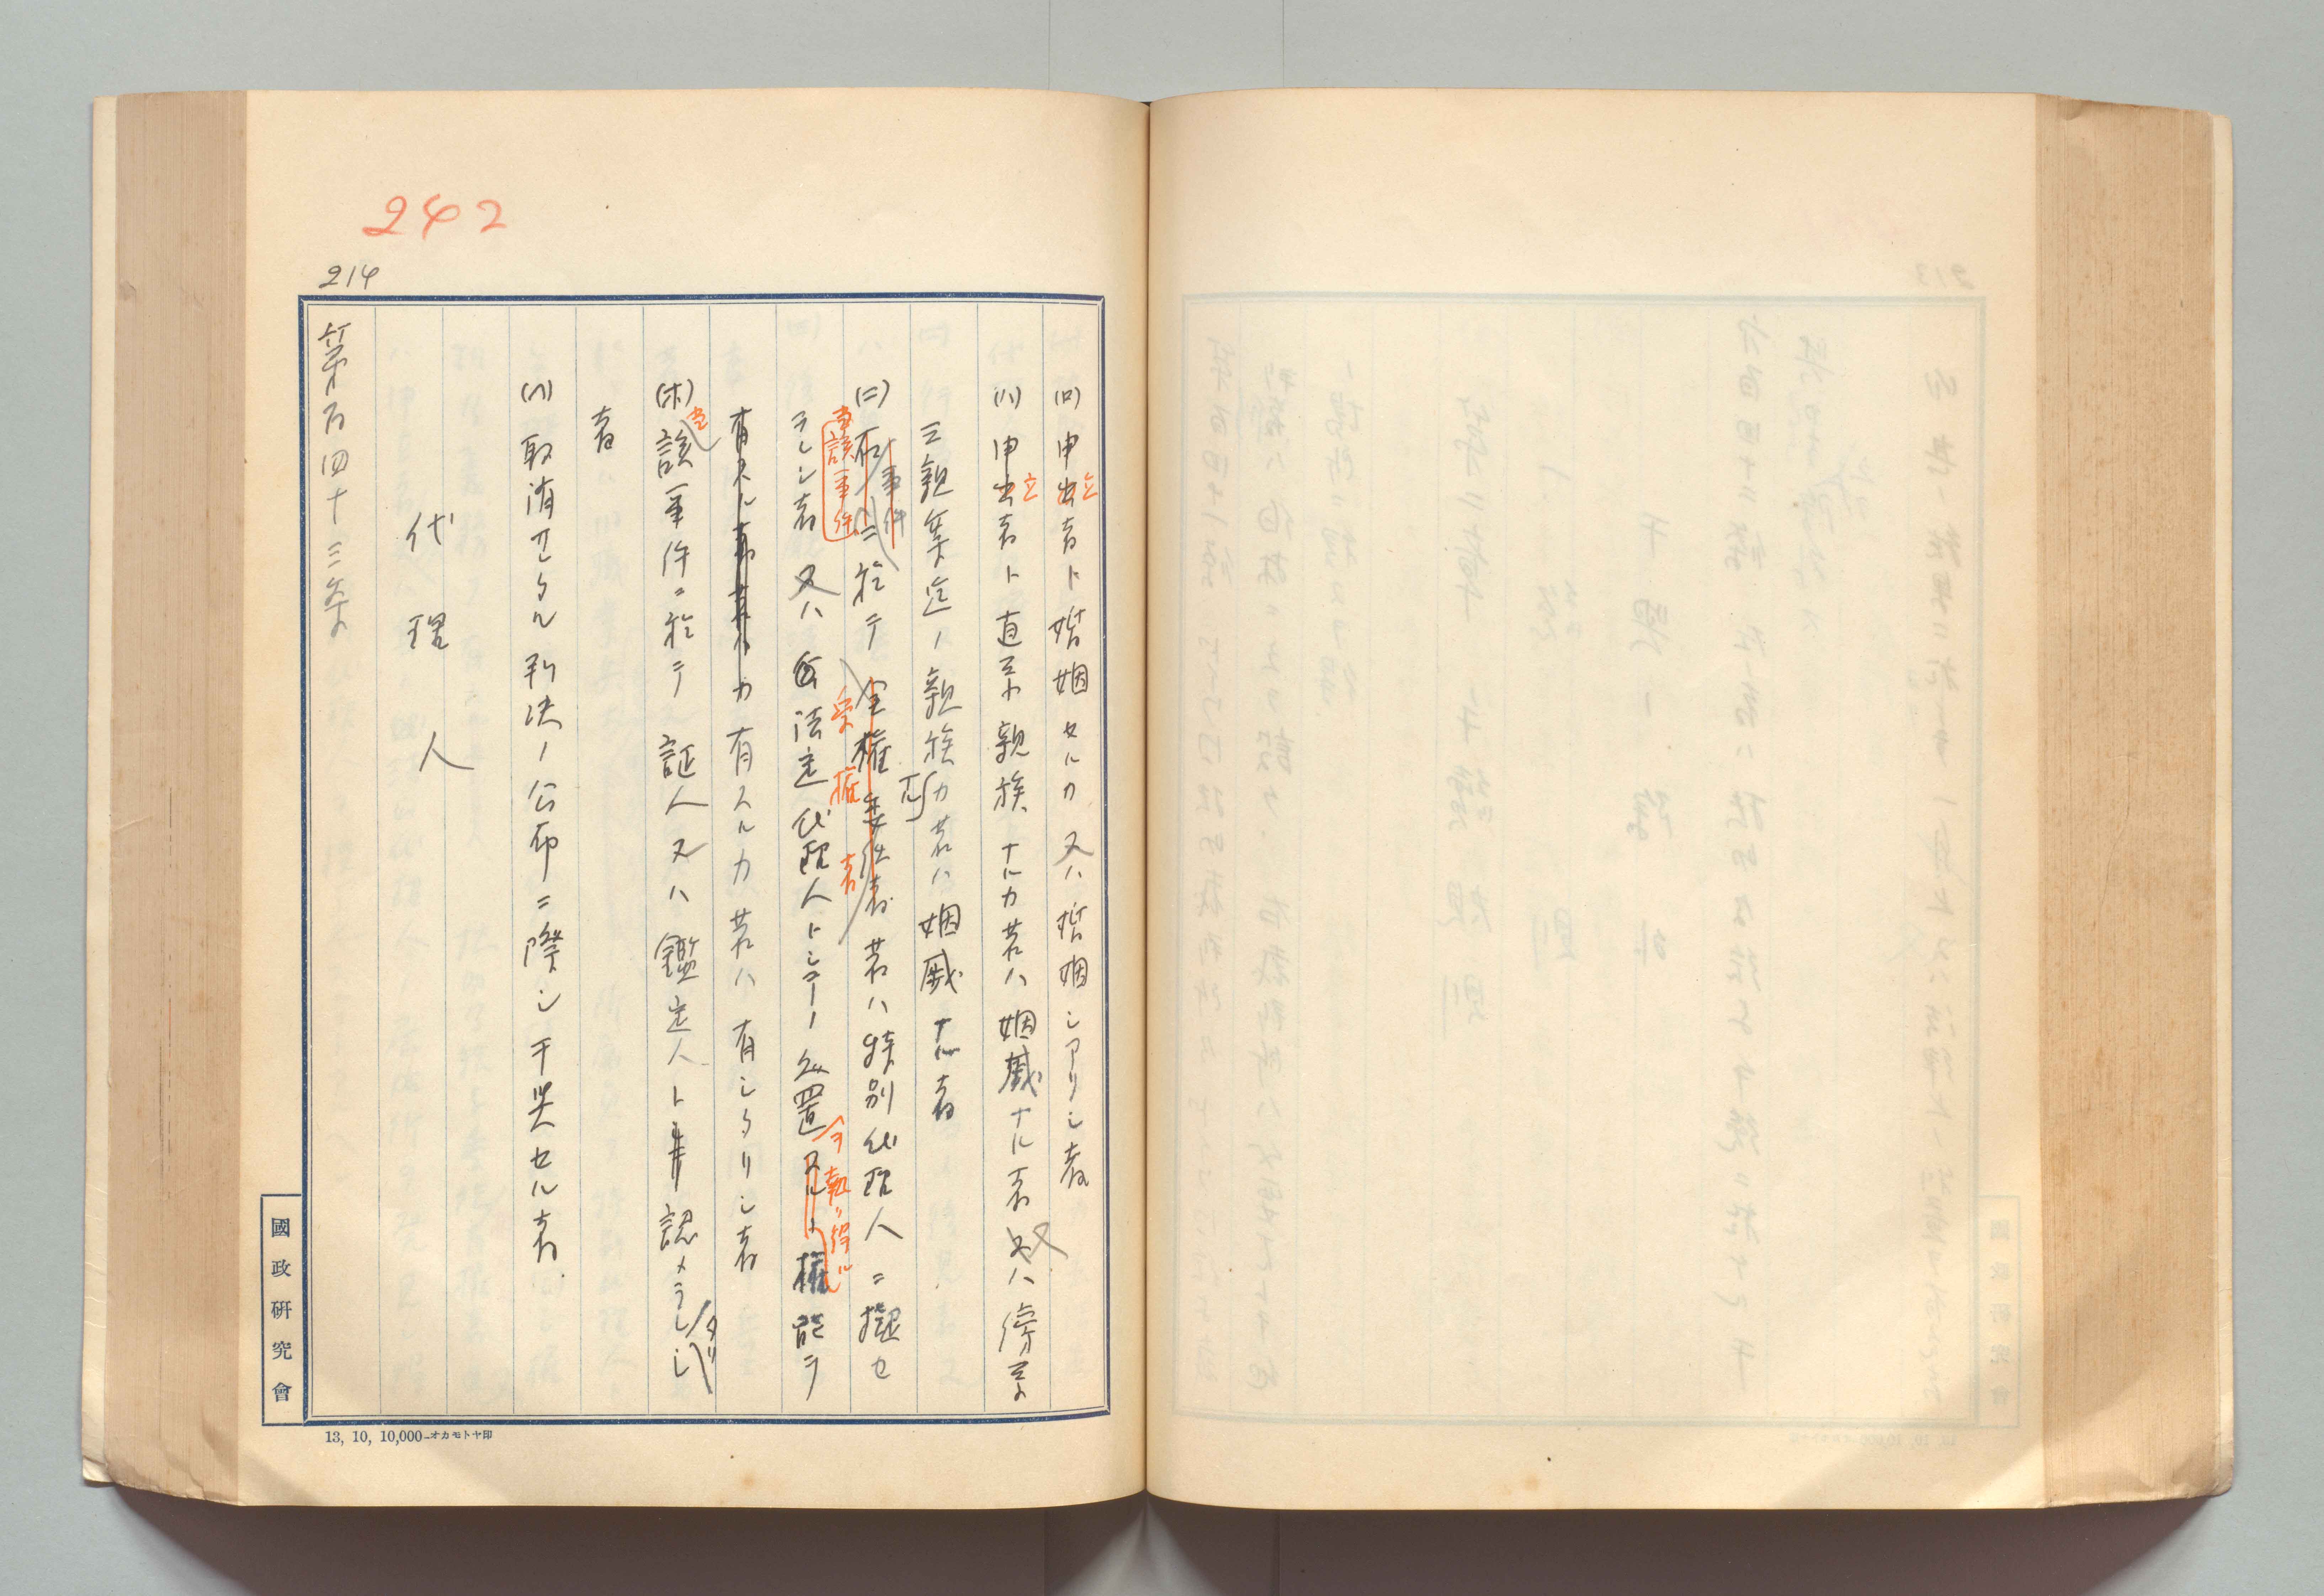 242
214
(ロ) 申立者ト婚姻セルカ又ハ婚姻シアリシ者
(ハ) 申立者ト直系親族ナルカ若ハ姻戚ナル者又ハ傍系
三親等迄ノ親族カ若ハ姻戚ナル者
(ニ) 当該事件ニ於テ受権者若ハ特別代理人ニ擬セ
ラレシ者又ハ法定代理人トシテノ処置ヲ執リ得ル権能ヲ
有スルカ若ハ有シタリシ者
(ホ) 当該事件ニ於テ証人又ハ鑑定人ト認メラレタリシ
者
(ヘ) 取消サレタル判決ノ公布ニ際シ干与セル者
代理人
第百四十三条
國政研究會
13, 10, 10,000—オカモトヤ印